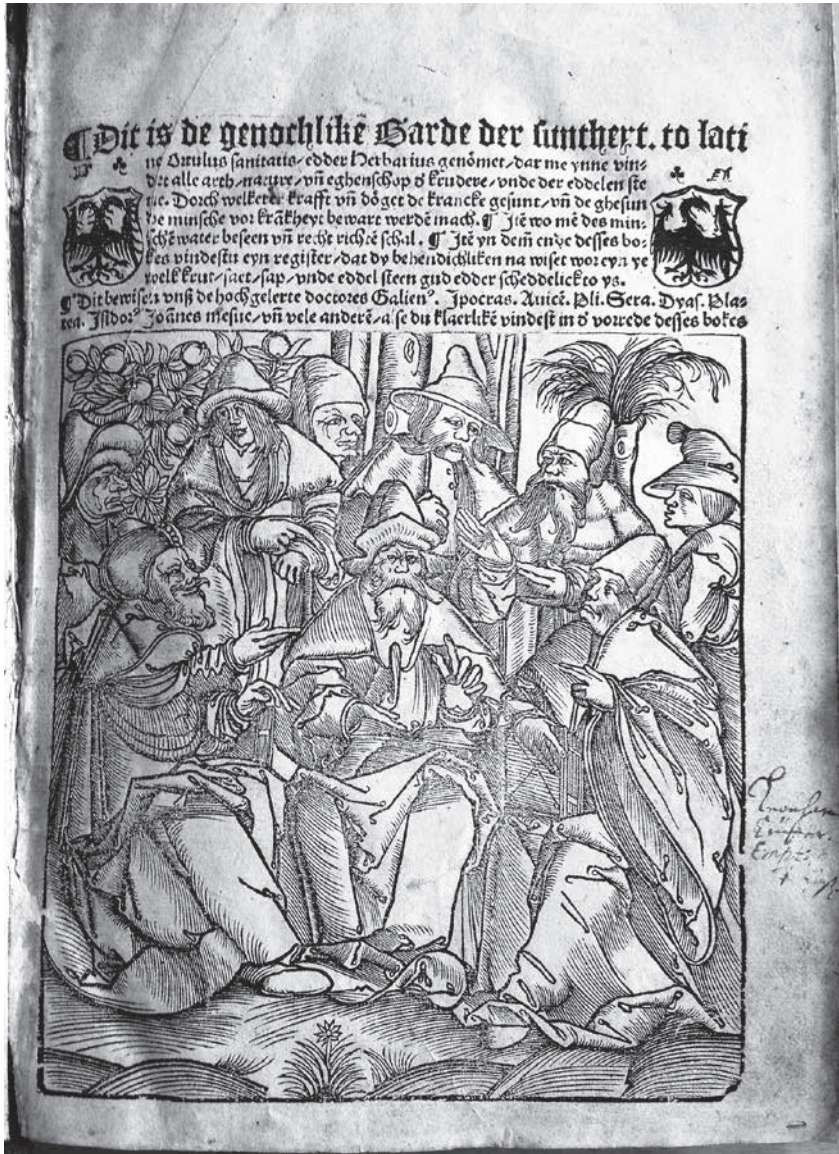 ¶Dit is de genochlikē Garde der suntheyt. to lati
ne Ortulus sanitatis/edder Herbarius genömet/dar me ynne vin-
det alle arth/nature/vñ eghenschop ď krudere/vnde der eddelen ste
ne. Dorch welketer krafft vñ döget de krancke gesunt/vñ de ghesun
de minsche vor krākheyt bewart werdē mach. ¶ Jtē wo mē des min-
schē water beseen vñ recht richtē schal. ¶ Jtē yn dem ende desses bo-
kes vindestu eyn register/dat dy behendichliken na wiset wor eyn ye
welk krut/saet/sap/vnde eddel steen gud edder scheddelick to ys.
¶ Dit bewisen vnß de hochgelerte doctores Galienꝰ. Jpocras. Auicē. Pli. Sera. Dyas. Pla-
tea. Jsidorꝰ Joānes mesue/vñ vele anderē/alse du klaerlikē vindest in ď vorrede desses bokes